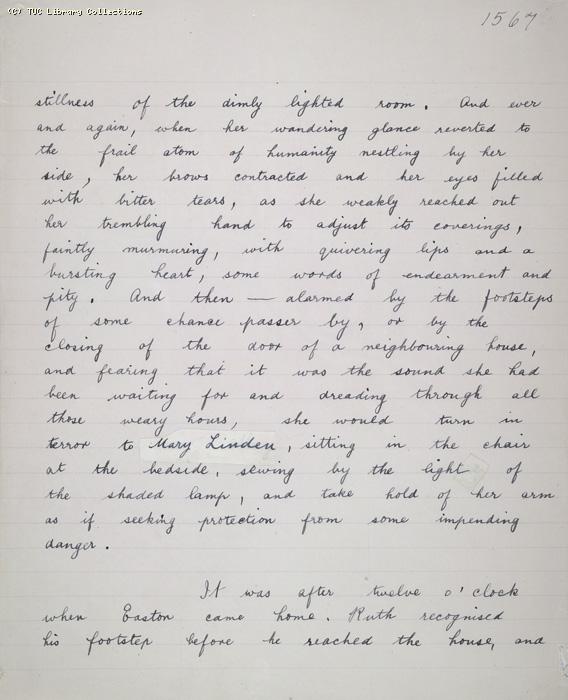 (C) TUC Library Collections
1567
stillness of the dimly lighted room. And ever
and again, when her wandering glance reverted to
the frail atom of humanity nestling by her
side, her brows contracted and her eyes filled
with bitter tears, as she weakly reached out
her trembling hand to adjust its coverings,
faintly murmuring, with quivering lips and a
bursting heart, some words of endearment and
pity. And then — alarmed by the footsteps
of some chance passer by, or by the
closing of the door of a neighbouring house,
and fearing that it was the sound she had
been waiting for and dreading through all
those weary hours, she would turn in
terror to Mary Linden, sitting in the chair
at the bedside, sewing by the light of
the shaded lamp, and take hold of her arm
as if seeking protection from some impending
danger.
It was after twelve o'clock
when Easton came home. Ruth recognised
his footstep before he reached the house, and